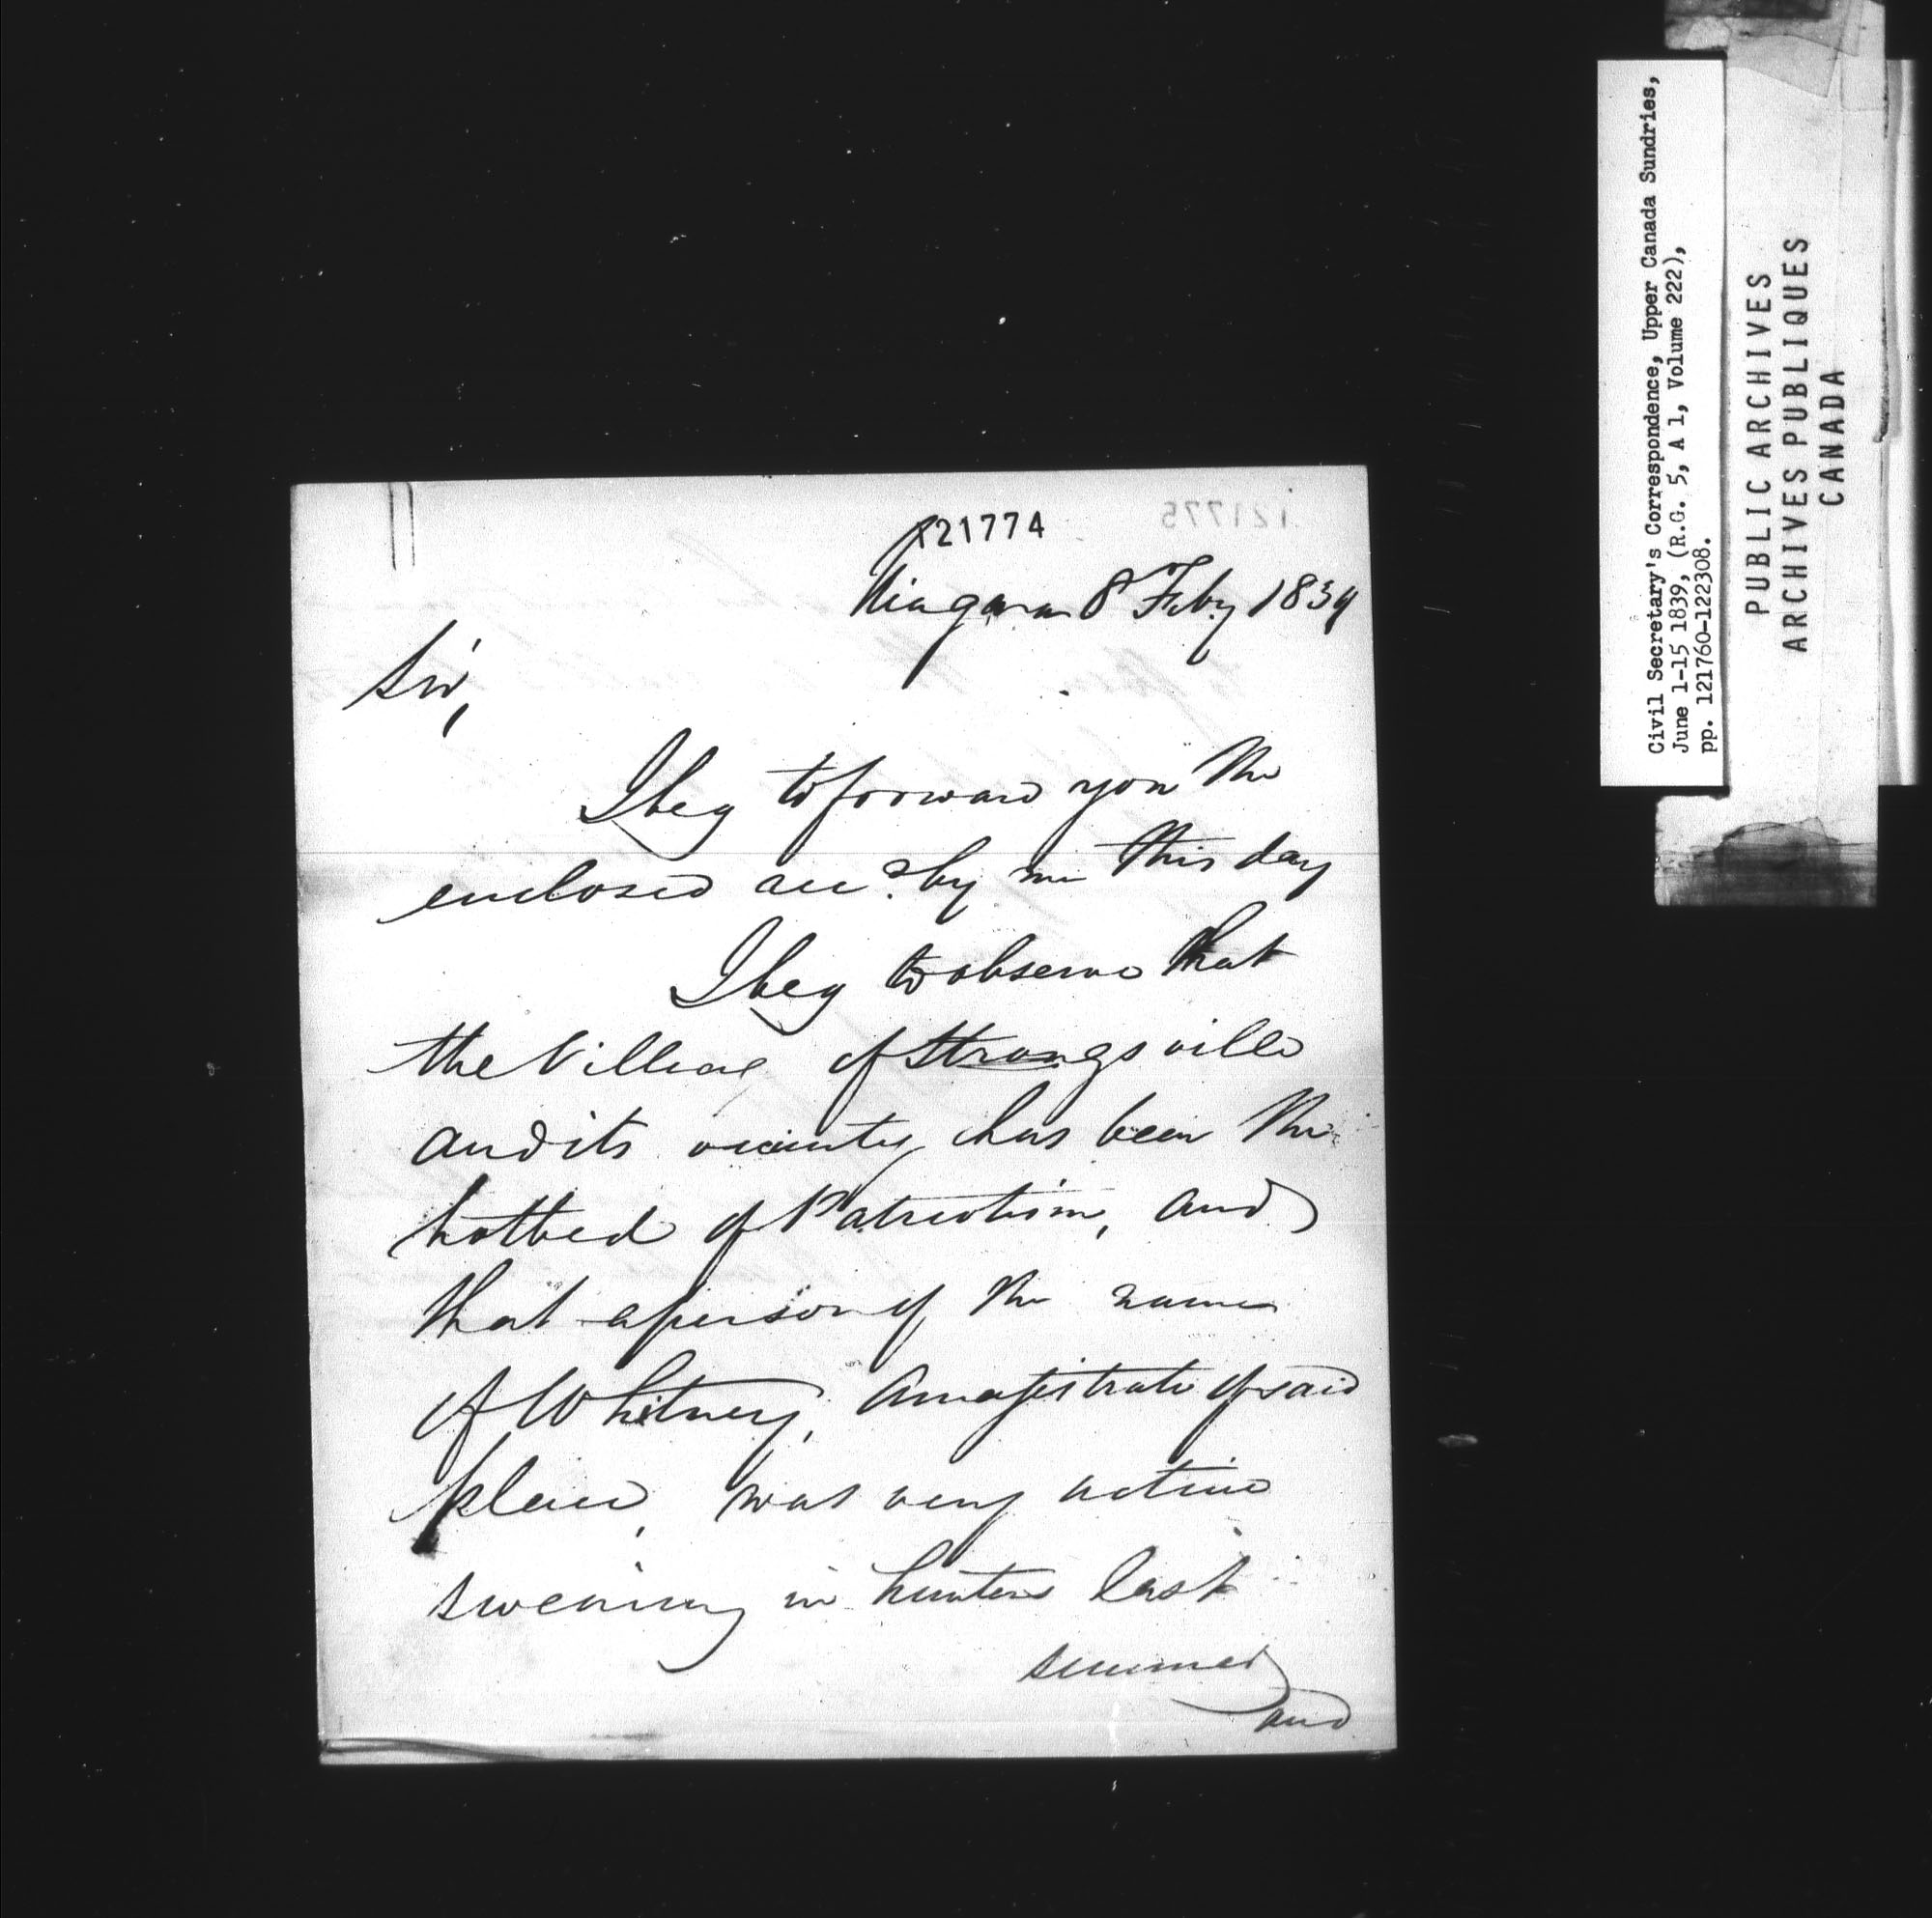 121774
121775
Niagara 8 Feby 1839
Sir,
I beg to forward you the
enclosed recd. by me this day
I beg to observe that
the Village of Strongsville
and its vicinity, has been the
hotbed of Patriotism, and
that a person of the name
of Whitney, a magistrate of said
place, was very active
swearing in hunters last
summer
and
Civil Secretary's Correspondence, Upper Canada Sundries,
June 1-15 1839, (R.G. 5, A 1, Volume 222),
pp. 121760-122308.
PUBLIC ARCHIVES
ARCHIVES PUBLIQUES
CANADA